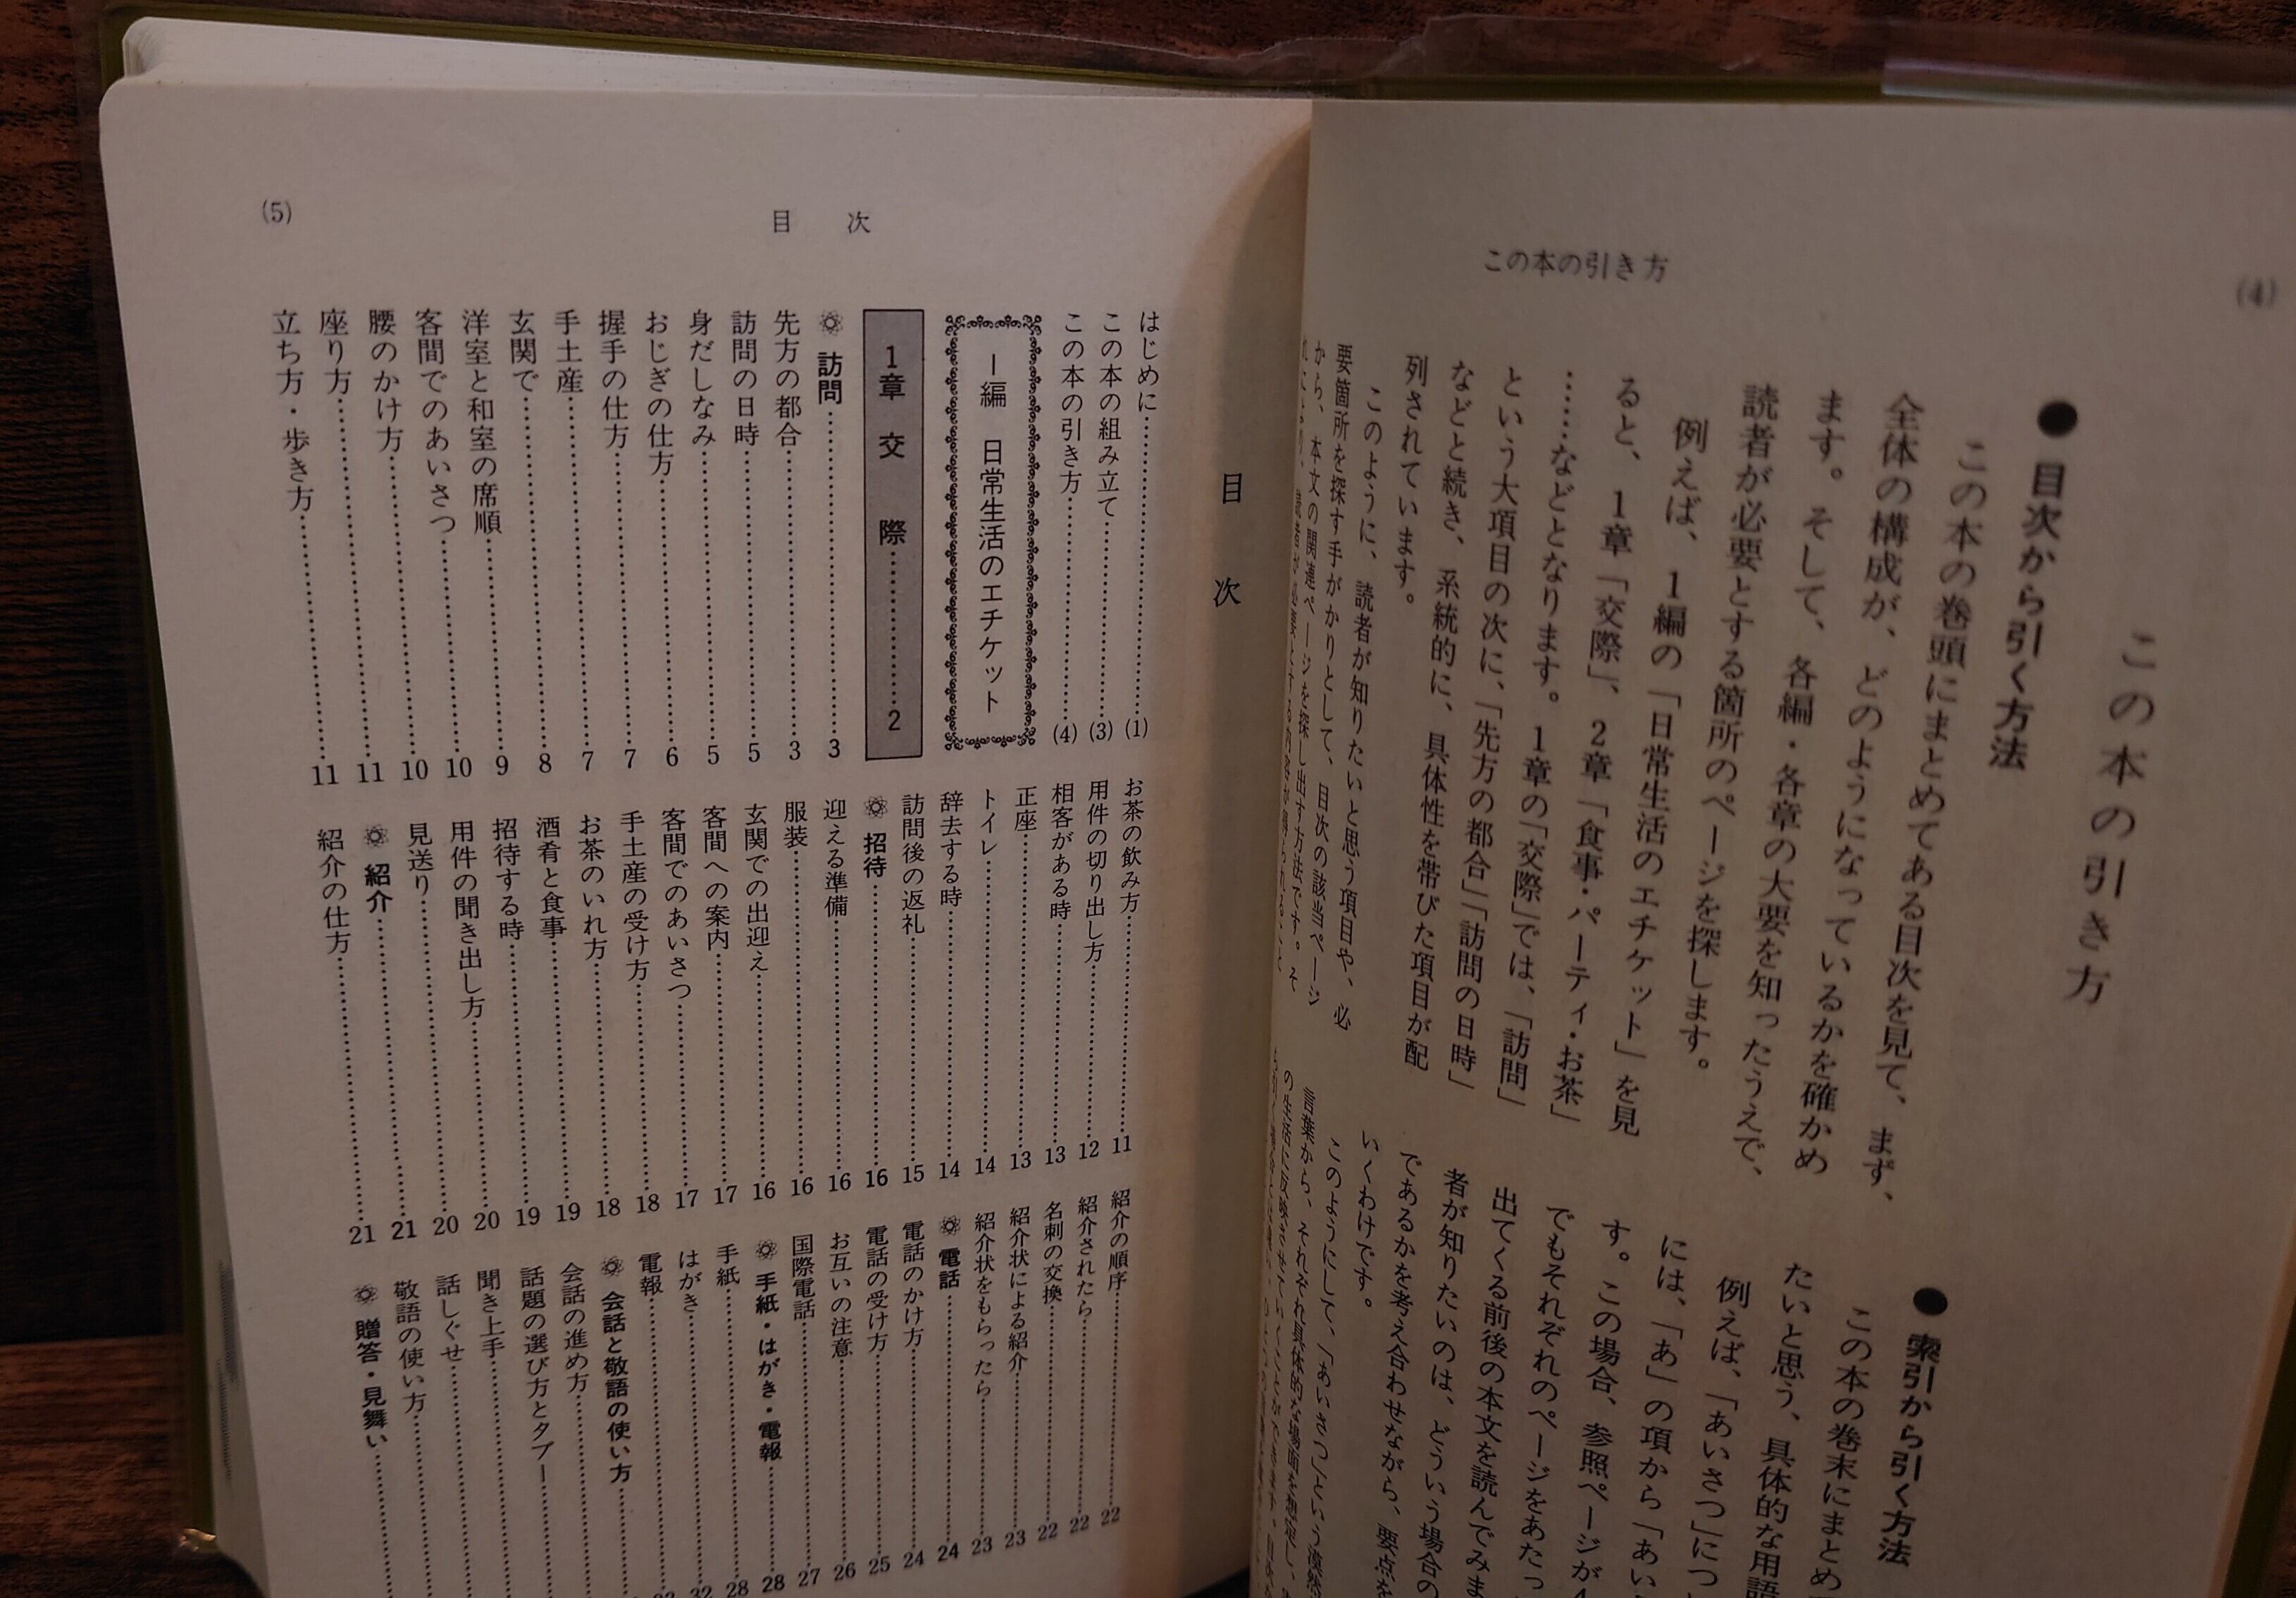 (4)
この本の引き方
この本の引き方
●目次から引く方法
この本の巻頭にまとめてある目次を見て、まず、
全体の構成が、どのようになっているかを確かめ
ます。そして、各編・各章の大要を知ったうえで、
読者が必要とする箇所のページを探します。
例えば、1編の「日常生活のエチケット」を見
ると、1章「交際」、2章「食事・パーティ・お茶」
……などとなります。1章の「交際」では、「訪問」
という大項目の次に、「先方の都合」「訪問の日時」
などと続き、系統的に、具体性を帯びた項目が配
列されています。
このように、読者が知りたいと思う項目や、必
要箇所を探す手がかりとして、目次の該当ページ
から、本文の関連ページを探し出す方法です。そ
●索引から引く方法
この本の巻末にまとめ
たいと思う、具体的な用語
例えば、「あいさつ」につ
には、「あ」の項から「あい
す。この場合、参照ページが
でもそれぞれのページをあたっ
出てくる前後の本文を読んでみま
者が知りたいのは、どういう場合の
であるかを考え合わせながら、要点を
いくわけです。
このようにして、「あいさつ」という
言葉から、それぞれ具体的な場面を
(5)
目次
目次
はじめに……(1)
この本の組み立て……(3)
この本の引き方……(4)
I編 日常生活のエチケット
1章 交際……2
訪問……3
先方の都合……3
訪問の日時……5
身だしなみ……5
おじぎの仕方……6
握手の仕方……7
手土産……7
玄関で……8
洋室と和室の席順……9
客間でのあいさつ……10
腰のかけ方……10
座り方……11
立ち方・歩き方……11
お茶の飲み方……11
用件の切り出し方……12
相客がある時……13
正座……13
トイレ……14
辞去する時……14
訪問後の返礼……15
招待……16
迎える準備……16
服装……16
玄関での出迎え……16
客間への案内……17
客間でのあいさつ……17
手土産の受け方……18
お茶のいれ方……18
酒肴と食事……19
招待する時……19
用件の聞き出し方……20
見送り……20
紹介……21
紹介の仕方……21
紹介の順序……22
紹介されたら……22
名刺の交換……22
紹介状による紹介……23
紹介状をもらったら……23
電話……24
電話のかけ方……24
電話の受け方……25
お互いの注意……26
国際電話……27
手紙・はがき・電報……28
手紙……28
はがき……32
電報……
会話と敬語の使い方……
会話の進め方……
話題の選び方とタブー……
聞き上手……
話しぐせ……
敬語の使い方……
贈答・見舞い……